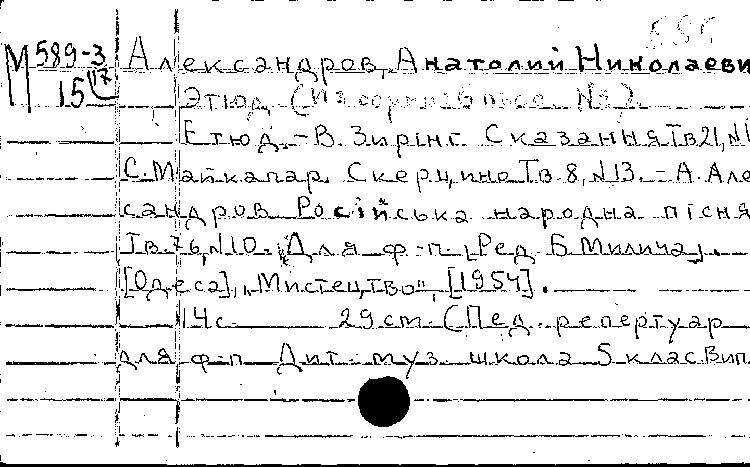 М 589-3
15
Александров, Анатолий Николаеви
Этюд
Етюд. - В. Зирінг. Сказання Тв 21, №1
С. Майкапар. Скерцино Тв 8, №13. - А. Але
сандров Російська народна пісня
Тв. 76, №10. Для ф-п. Ред Б Милича].
[Одеса], "Мистецтво", [1954].
14с. 29cm (Пед. репертуар
для ф-п Дит муз. школа 5 клас Вип